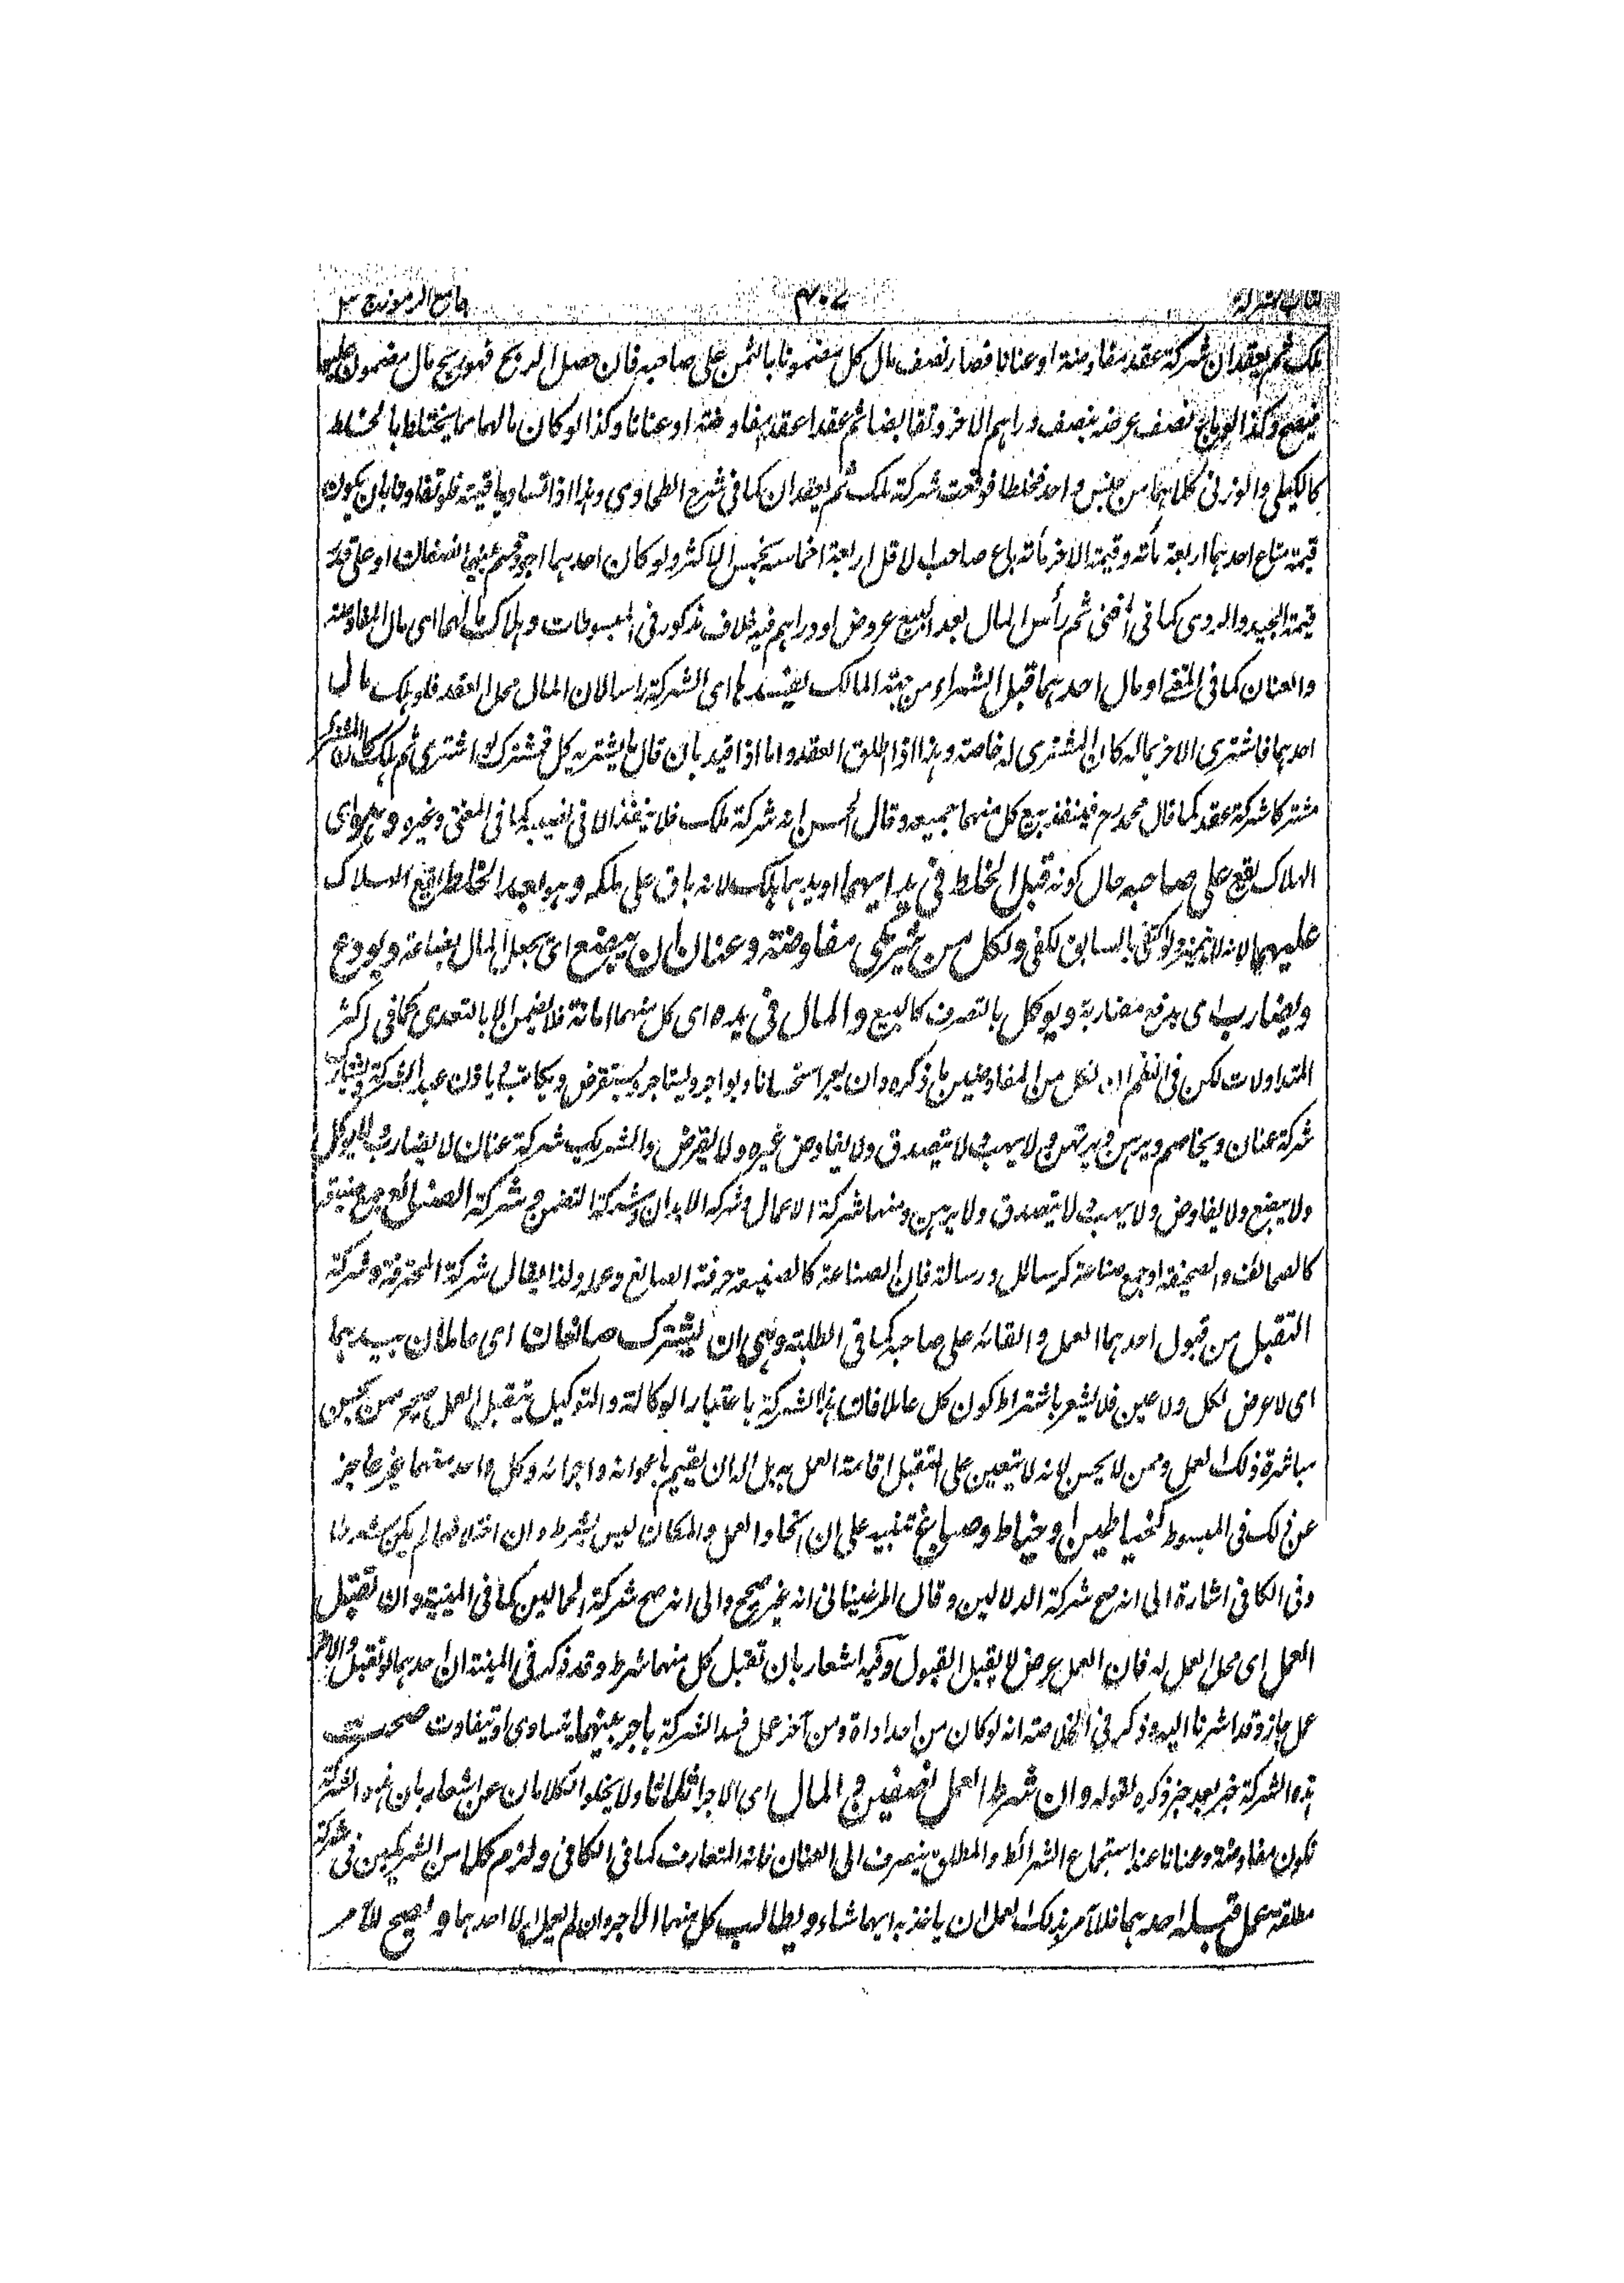 كتاب الشركة ٤٠٧ جامع الرموز ج ٣
ملك ثم يعقدان شركة عقد مفاوضة او عنانا فصار نصف مال كل مضمونا بالثمن على صاحبه فان حصل الربح فهو ربح مال مضمون عليهما
فيصح وكذا لو باع نصف عرضه بنصف دراهم الاخر وتقابضا ثم عقدا عقد مفاوضة او عنانا وكذا لو كان مالهما مما يختلط بالخلط
كالكيلي والوزني كلاهما من جنس واحد فخلطا فوقعت شركة ملك ثم يعقدان كما في شرح الطحاوي وهذا اذا تساويا قيمة فلو تفاوتا بان يكون
قيمة متاع احدهما اربعة مأته وقيمة الاخر مأته باع صاحب الاقل اربعة اخماسه بخمس الاكثر ولو كان احدهما اجود قسم بينهما نصفان او على قدر
قيمة الجيد والردي كما في ثم رأس المال بعد البيع عروض او دراهم فيه خلاف مذكور في المبسوطات وهلاك مالهما اي مال المفاوضة
والعنان كما في او مال احدهما قبل الشراء من جهة المالك يفسدها اي الشركة راسا لان المال محل العقد فلو هلك مال
احدهما فاشترى الاخر بماله كان المشترى له خاصة وهذا اذا اطلق العقد واما اذا قيد بان قال ما يشتريه كل فمشترك لو اشترى ثم هلك كان المشترى
مشتركا شركة عقد كما قال محمد رح فينفذ بيع كل منهما جميعه وقال الحسن انه شركة ملك فلا ينفذ الا في نصيبه كما في المغني وغيره وهو اي
الهلاك يقع على صاحبه حال كونه قبل الخلط في يد ايهما او يدهما هلك لانه باق على ملكه وهو بعد الخلط اقع الهلاك
عليهما لانه لا يتميز ولو اكتفى بالسابق لكفى ولكل من شريكي مفاوضة وعنان ان يبضع اي يجعل المال بضاعة ويودع
ويضارب اي يدفع مضاربة ويوكل بالتصرف كالبيع والمال في يده اي كل منهما امانة فلا يضمن الا بالتعدي كما في اكثر
المتداولات لكن في النظم ان لكل من المفاوضين ما ذكره وان يعير استحسانا ويواجر ويستاجر ويستقرض ويكاتب وياذن عبد الشركة ويشارك
شركة عنان ويخاصم ويرهن ويرتهن ولا يهب ولا يتصدق ولا يفاوض غيره ولا يقرض والشريك شركة عنان لا يضارب ولا يوكل
ولا يبضع ولا يفاوض ولا يهب ولا يتصدق ولا يرهن ومنها شركة الاعمال وشركة الابدان وشركة التضمن وشركة الصنائع جمع صنيعة
كالصحائف والصحيفة او جمع صناعة كرسائل ورسالة فان الصناعة كالصنيعة حرفة الصانع وعمله ولذا يقال شركة المحترفة وشركة
التقبل من قبول احدهما العمل والقائه على صاحبه كما في الطلبة وهي ان يشترك صانعان اي عاملان بيدهما
اي لا عرض لكل ولا عين فلا يشعر باشتراط كون كل عاملا فان هذه الشركة باعتبار الوكالة والتوكيل بتقبل العمل صحيح ممن يحسن
مباشرة ذلك العمل وممن لا يحسن لانه لا يتعين على المتقبل اقامة العمل بيده بل له ان يقيم باعوانه واجرائه وكل واحد منهما غير عاجز
عن ذلك كما في المبسوط كخياطين او خياط وصباغ تنبيه على ان اتحاد العمل والمكان ليس بشرط وان اختلافهما لم يكن شرطا
وفي الكافي اشارة الى انه صح شركة الدلالين وقال المرغيناني انه غير صحيح والى انه صح شركة الحمالين كما في المنية وان تقبل
العمل اي محل العمل له فان العمل عرض لا يقبل القبول وفيه اشعار بان تقبل كل منهما شرط وقد ذكر في المنية ان احدهما لو تقبل والاخر
عمل جاز وقد اشرنا اليه وذكر في الخلاصة انه لو كان من احد اداة ومن آخر عمل فسد الشركة باجر بينهما يتساوى او يتفاوت صحت
هذه الشركة خبر بعد خبر ذكره لقوله وان شرط العمل نصفين والمال اي الاجر اثلاثا ولا يخلوا الكلامان عن اشعار بان هذه الشركة
تكون مفاوضة وعنانا عند استجماع الشرائط والمطلق ينصرف الى العنان فانه المتعارف كما في الكافي ولزم كلا من الشريكين في شركة
مطلقة عمل قبله احدهما فللآمر بذلك العمل ان ياخذ به ايهما شاء ويطالب كل منهما الاجر وان لم يعمل الا احدهما و للآمر